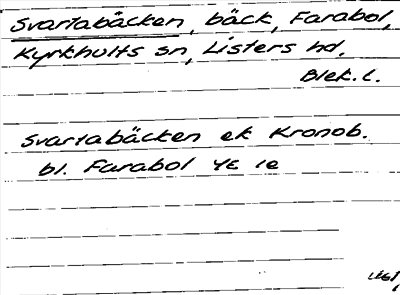 Svartabäcken, bäck, Farabol,
Kyrkhults sn, Listers hd.
Blek. l.
Svartabäcken ek Kronob.
bl. Farabol 4E 1e